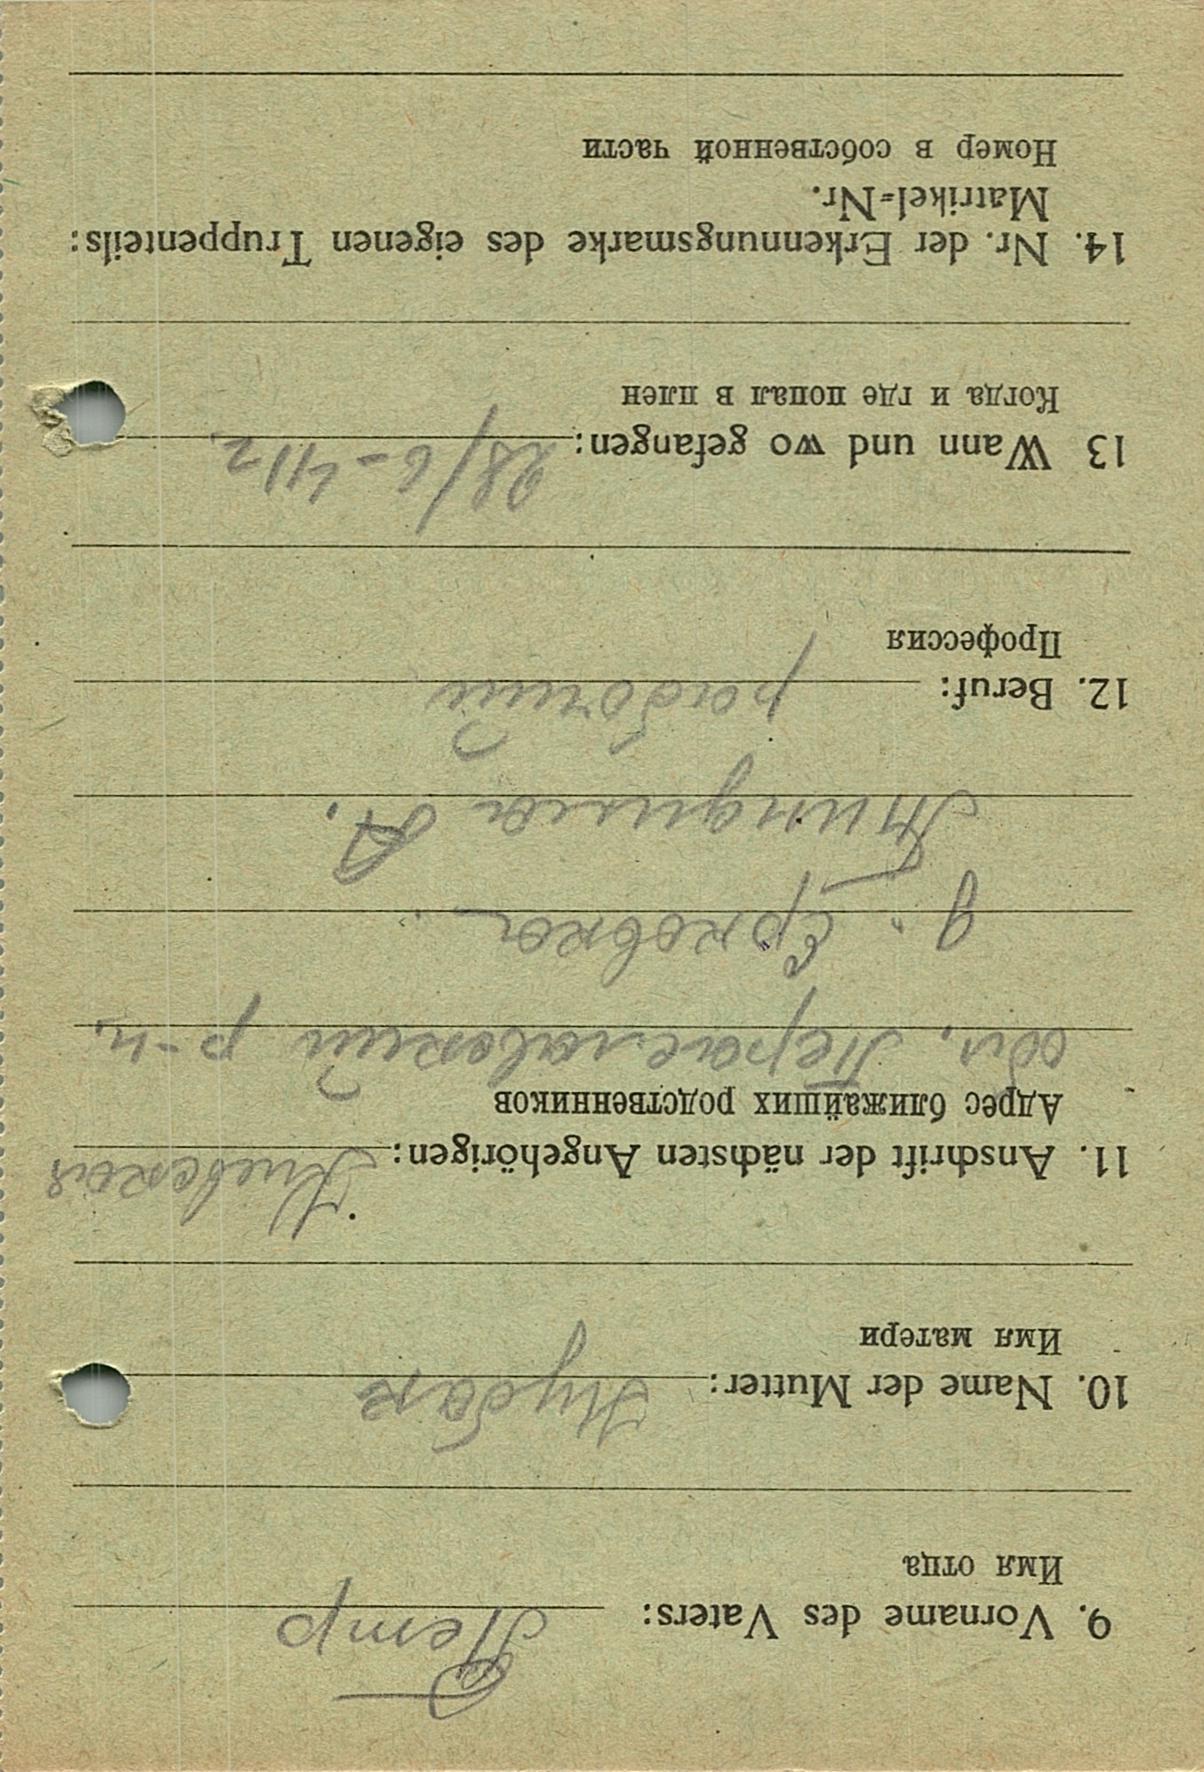 9. Vorname des Vaters: Петр
Имя отца
10. Name der Mutter:
Имя матери
11. Anschrift der nächsten Angehörigen: Киевская
Адрес ближайших родственников
обл. Переславский р-н.
д. Ерковка
А.
12. Beruf: рабочий
Профессия
13 Wann und wo gefangen: 28/6-41г.
Когда и где попал в плен
14. Nr. der Erkennungsmarke des eigenen Truppenteils:
Matrikel=Nr.
Номер в собственной части